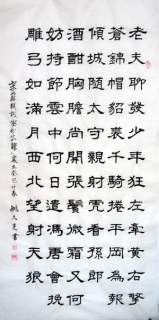 老夫聊發少年狂左牽黃右擎
蒼錦帽貂裘千騎卷平岡為報
傾城隨太守親射虎看孫郎
酒酣胸膽尚開張鬢微霜又何
妨持節雲中何日遣馮唐會挽
雕弓如滿月西北望射天狼
宋蘇軾